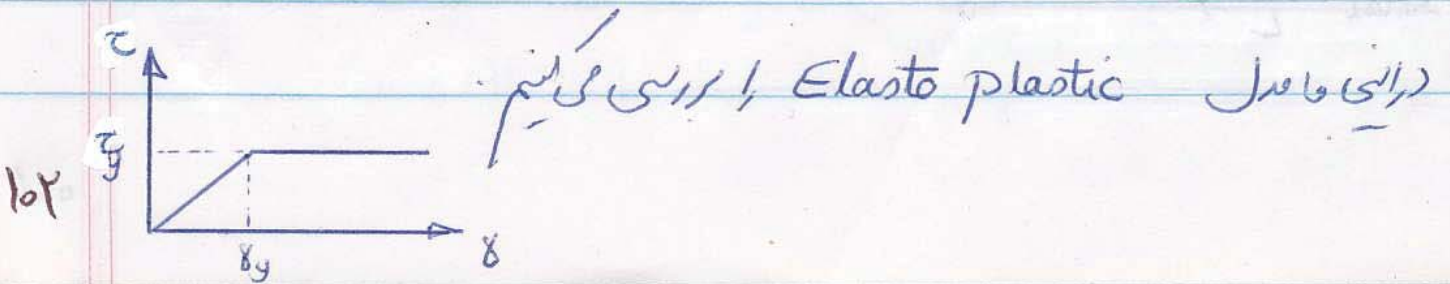 در اینجا مدل Elasto plastic را بررسی می‌کنیم.
τ
τy
γy
γ
۱۰۲